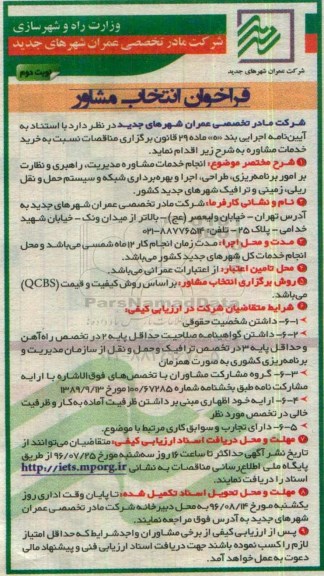 وزارت راه و شهرسازی
شرکت مادر تخصصی عمران شهرهای جدید
شرکت عمران شهرهای جدید
نوبت دوم
فراخوان انتخاب مشاور
شرکت مادر تخصصی عمران شهرهای جدید در نظر دارد با استناد به
آیین‌نامه اجرایی بند «ه» ماده ۲۹ قانون برگزاری مناقصات نسبت به خرید
خدمات مشاوره به شرح زیر اقدام نماید.
۱ شرح مختصر موضوع: انجام خدمات مشاوره مدیریت، راهبری و نظارت
بر امور برنامه‌ریزی، طراحی، اجرا و بهره‌برداری شبکه و سیستم حمل و نقل
ریلی، زمینی و ترافیک شهرهای جدید کشور.
۲ نام و نشانی کارفرما: شرکت مادر تخصصی عمران شهرهای جدید به
آدرس تهران - خیابان ولیعصر (عج) - بالاتر از میدان ونک - خیابان شهید
خدامی - پلاک ۲۵ - تلفن: ۸۸۷۷۶۵۱۴-۰۲۱
۳ مدت و محل اجرا: مدت زمان انجام کار ۱۲ ماه شمسی می‌باشد و محل
انجام خدمات کل شهرهای جدید کشور می‌باشد.
۴ محل تامین اعتبار: از اعتبارات عمرانی می‌باشد.
۵ روش برگزاری انتخاب مشاور: بر اساس روش کیفیت و قیمت (QCBS)
می‌باشد.
۶ شرایط متقاضیان شرکت در ارزیابی کیفی:
۱-۶- داشتن شخصیت حقوقی
۲-۶- داشتن گواهینامه صلاحیت حداقل پایه ۲ در تخصص راه‌آهن
و حداقل پایه ۳ در تخصص ترافیک و حمل و نقل از سازمان مدیریت و
برنامه‌ریزی کشوری به صورت همزمان
۳-۶- گروه مشارکت مشاوران با تخصص‌های فوق‌الاشاره با ارایه
مشارکت نامه طبق بخشنامه شماره ۱۰۰/۶۷۲۸۵ مورخ ۱۳۸۹/۹/۱۳
۴-۶- ارایه خود اظهاری مبنی بر داشتن ظرفیت آماده به کار و ظرفیت
خالی در تخصص مورد نظر
۵-۶- دارای تجارب و سوابق کاری مرتبط با موضوع.
۷ مهلت و محل دریافت اسناد ارزیابی کیفی: متقاضیان می‌توانند از
تاریخ نشر آگهی حداکثر تا ساعت ۱۶ روز سه‌شنبه مورخ ۹۶/۰۷/۲۵ از طریق
پایگاه ملی اطلاع‌رسانی مناقصات به نشانی http://iets.mporg.ir
اسناد را دریافت نمایند.
۸ مهلت و محل تحویل اسناد تکمیل شده: تا پایان وقت اداری روز
یکشنبه مورخ ۹۶/۰۸/۱۴ به محل دبیرخانه شرکت مادر تخصصی عمران
شهرهای جدید به آدرس فوق مراجعه نمایند.
۹ پس از ارزیابی کیفی از برخی مشاوران واجد شرایط که حداقل امتیاز
لازم را کسب نموده باشند جهت دریافت اسناد ارزیابی فنی و پیشنهاد مالی
دعوت به عمل خواهد آمد.